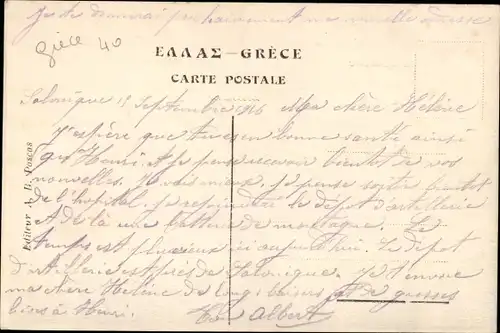 Je te donnerai prochainement ma nouvelle adresse
Grèce 40
ΕΛΛΑΣ — GRÈCE
CARTE POSTALE
Salonique 15 Septembre 1916 Ma chère Hélène
J'espère que tu es en bonne santé ainsi
que Henri. Je pense recevoir bientôt de vos
nouvelles. Je vais mieux. je pense sortir bientôt
de l'hopital. je rejoindrai le dépôt d'artillerie
et de là une batterie de montagne. Le
temps est pluvieux ici aujourd'hui. Le dépôt
d'artillerie est près de Salonique. Je t'envoie
ma chère Hélène de longs baisers et de grosses
bises à Henri. Ton Albert
Editeur A. B. Pascas